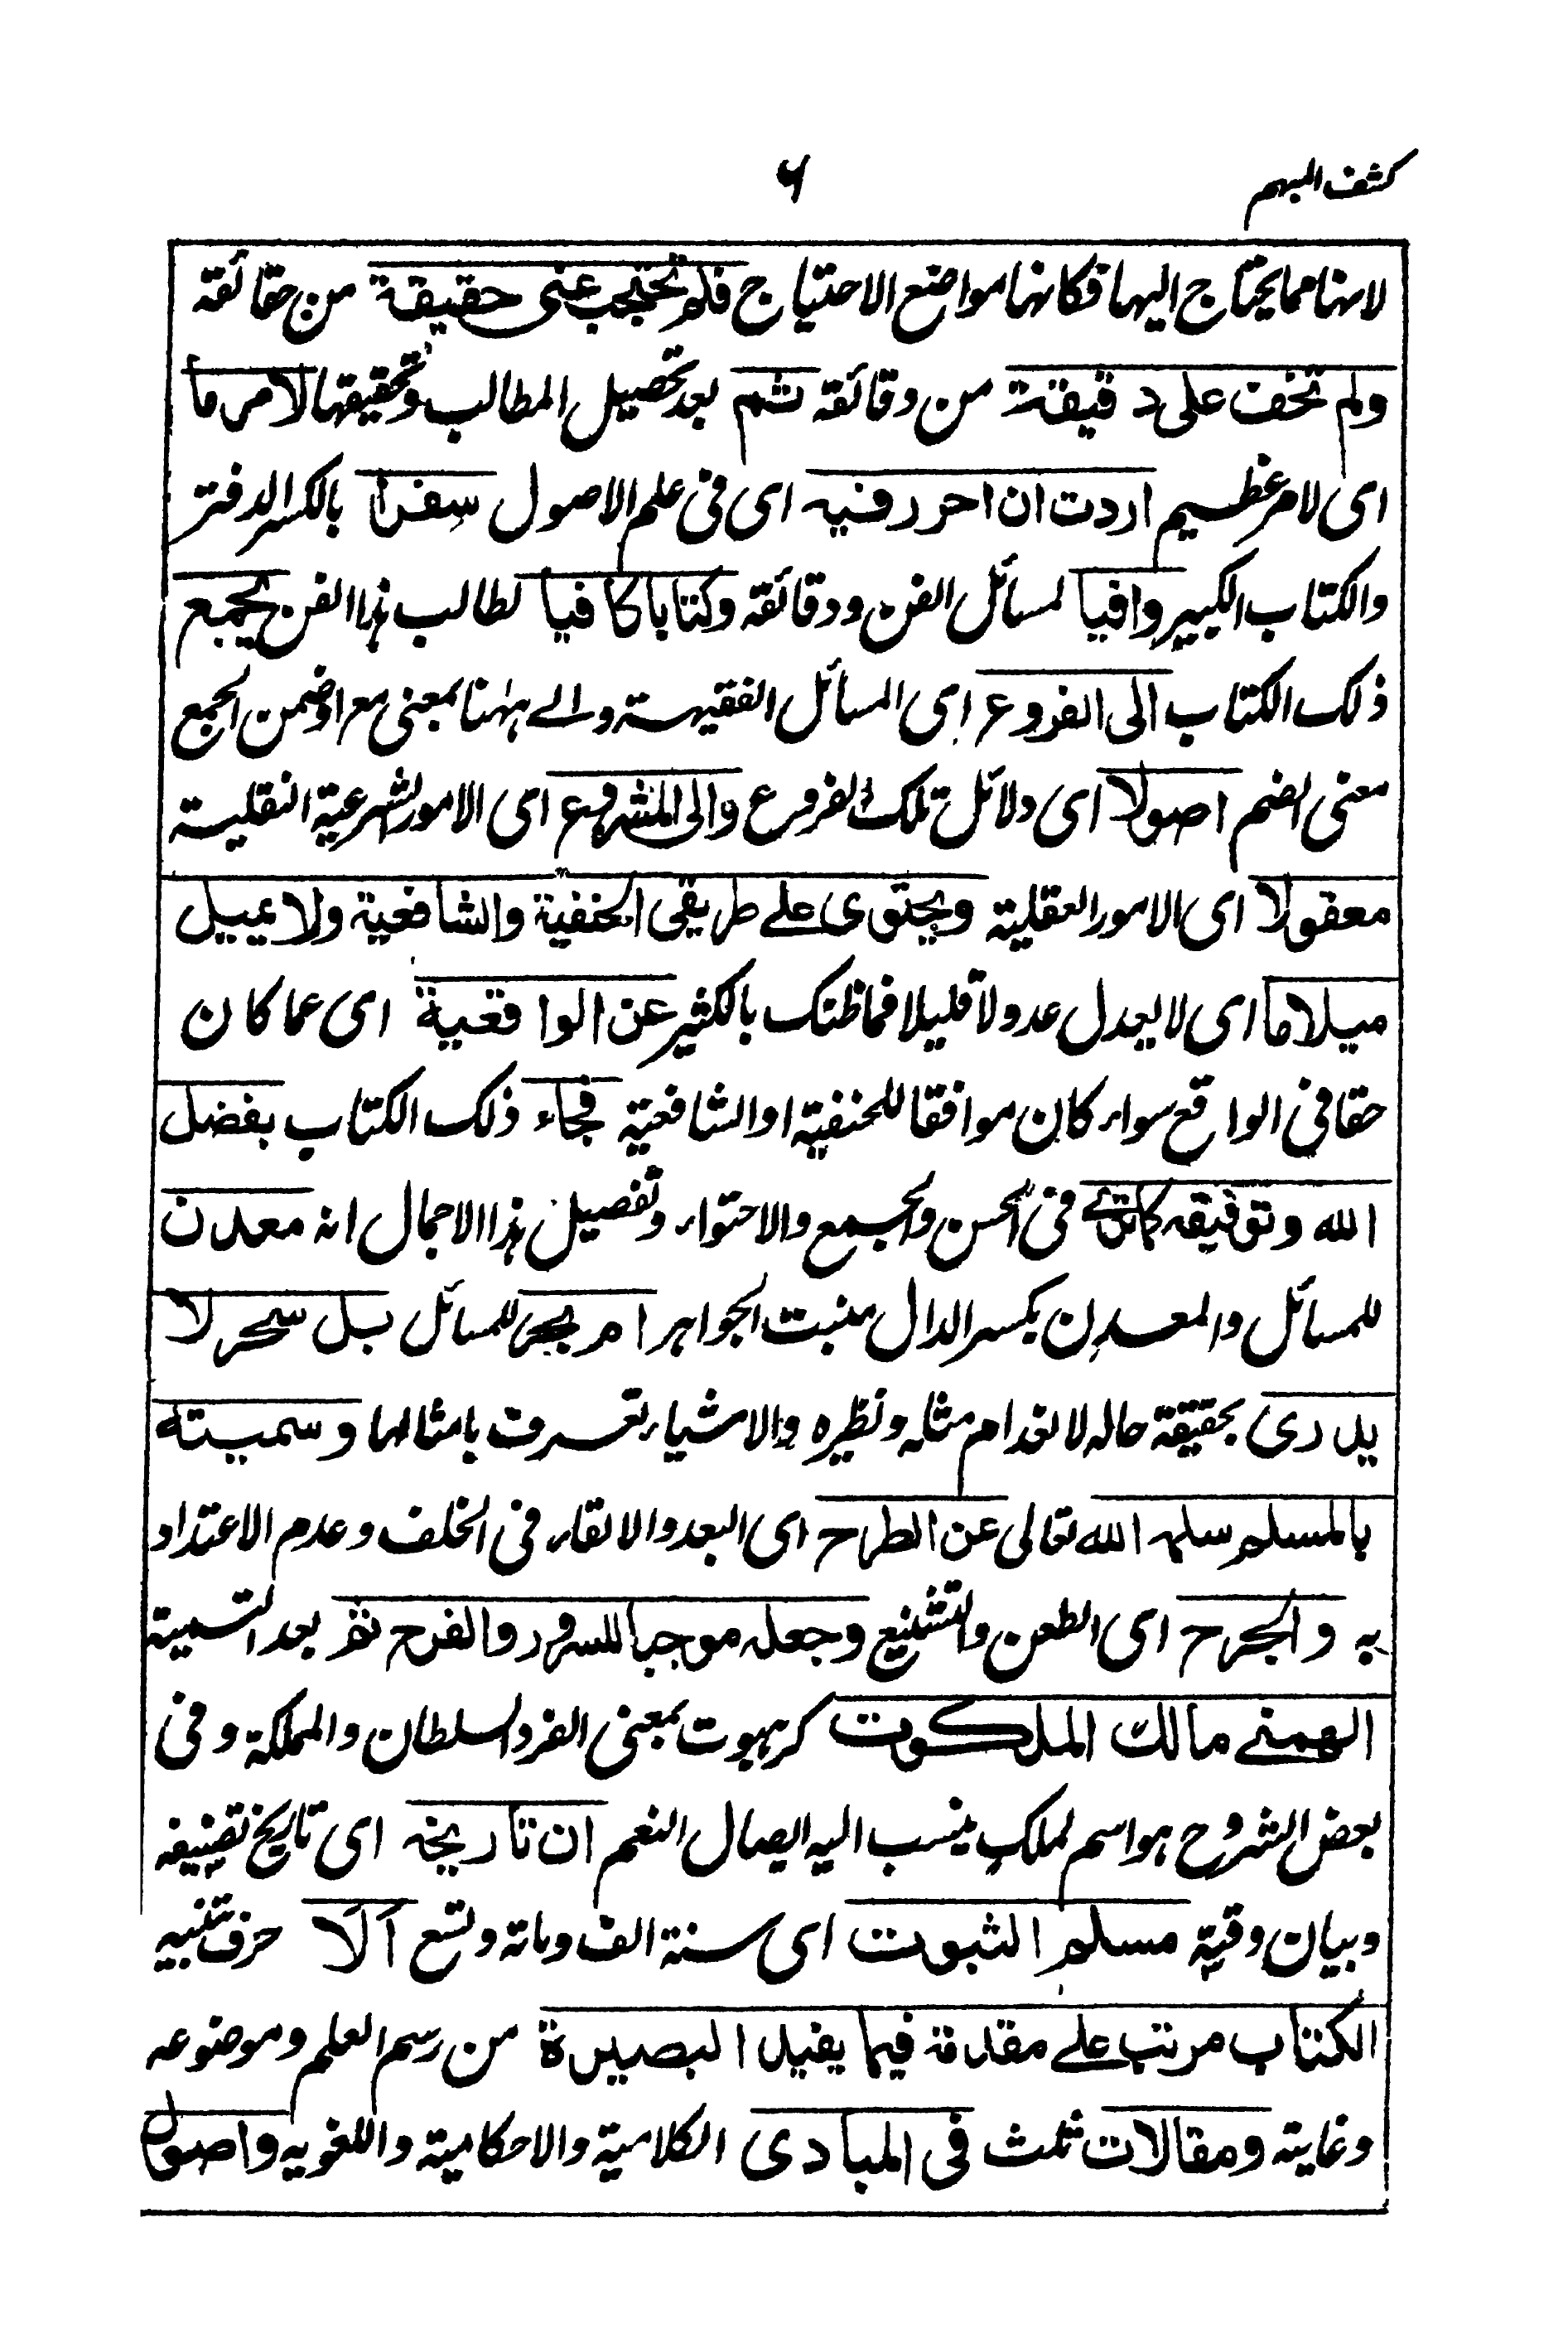 كشف المبهم
٦
لانها مما يحتاج اليها فكانها مواضع الاحتياج فلم تحتجب عنى حقيقة من حقائقه
ولم تخف على دقيقة من دقائقه ثم بعد تحصيل المطالب وتحقيقها لامر ما
اى لامر عظيم اردت ان احرر فيه اى فى علم الاصول سفرا بالكسر الدفتر
والكتاب الكبير وافيا لمسائل الفن ودقائقه وكتابا كافيا لطالب هذا الفن يجمع
ذلك الكتاب الى الفروع اى المسائل الفقيهة والے ههنا بمعنى مع او ضمن الجمع
معنى الضم اصولا اى دلائل تلك الفروع والى المشروع اى الامور الشرعية النقلية
معقولا اى الامور العقلية ويحتوى علے طريقى الحنفية والشافعية ولا يميل
ميلا ما اى لا يعدل عدولا قليلا فما ظنك بالكثير عن الواقعية اى عما كان
حقا فى الواقع سواء كان موافقا للحنفية او الشافعية فجاء ذلك الكتاب بفضل
الله وتوفيقه كما ترے فى الحسن والجمع والاحتواء وتفصيل هذا الاجمال انه معدن
للمسائل والمعدن بكسر الدال منبت الجواهر ام بحر للمسائل بل سحر لا
يدرى بحقيقة حاله لانعدام مثله ونظيره والاشياء تعرف بامثالها وسميته
بالمسلم سلمه الله تعالى عن الطرح اى البعد والالقاء فى الخلف وعدم الاعتداد
به والجرح اى الطعن والتشنيع وجعله موجبا للسرور والفرح ثم بعد التسمية
الهمنے مالك الملكوت كرهبوت بمعنى الفرد السلطان والمملكة وفى
بعض الشروح هو اسم لملك ينسب اليه ايصال النعم ان تاريخه اى تاريخ تصنيفه
وبيان وقته مسلم الثبوت اى سنة الف ومائة وتسع ألا حرف تنبيه
الكتاب مرتب علے مقدمة فيما يفيد البصيرة من رسم العلم وموضوعه
وغايته ومقالات ثلث فى المبادى الكلامية والاحكامية واللغويه واصول